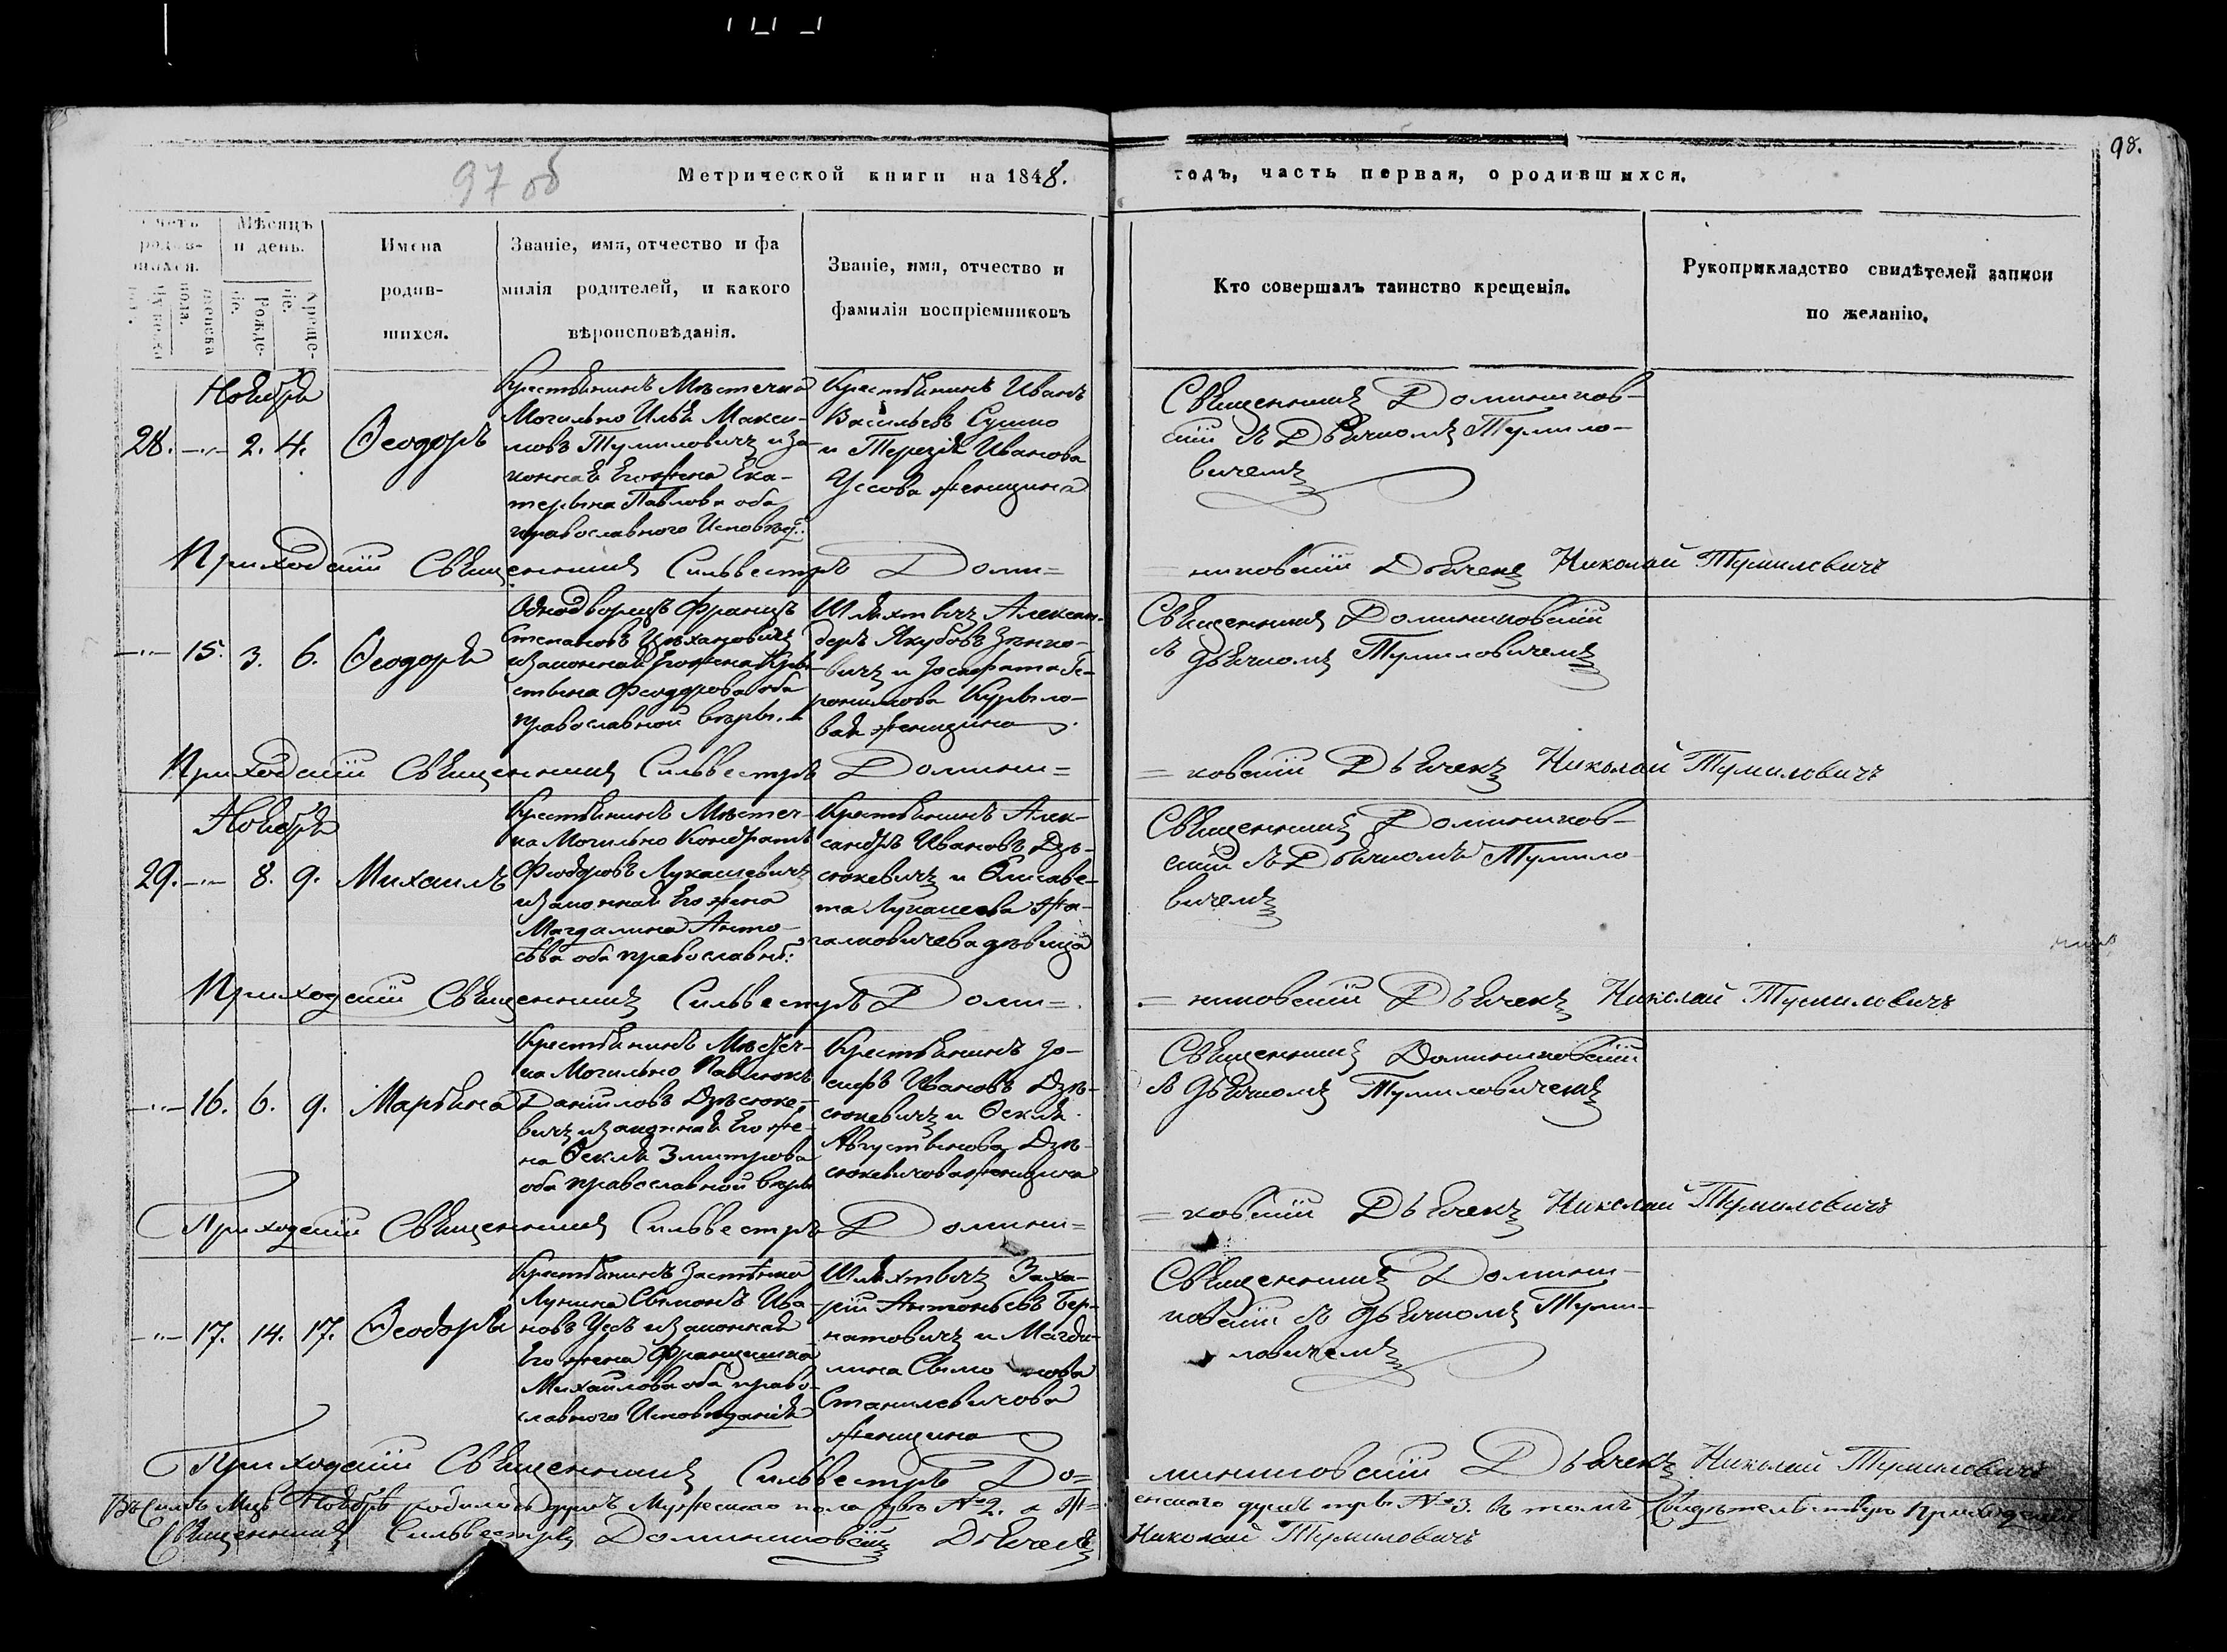 97 об
Метрической книги на 1848.
годъ, часть первая, о родившихся.
98.
Счетъ родив-
шихся.
Мѣсяцъ
и день.
Имена
родив-
шихся.
Званіе, имя, отчество и фа
милія родителей, и какого
вѣроисповѣданія.
Званіе, имя, отчество и
фамилія воспріемниковъ
Кто совершалъ таинство крещенія.
Рукоприкладство свидѣтелей записи
по желанію.
женска
пола.
Рожде-
ніе.
Креще-
ніе.
Ноября
28. 2. 4. Ѳеодоръ
Крестьянинъ Мѣстечка
Могильно Илья Макси-
мовъ Тумиловичъ и за-
конная Его жена Ека-
терина Павлова оба
православного Исповѣд:
Крестьянинъ Иванъ
Васильевъ Сушко
и Терезія Иванова
Усова женщина
Священникъ Домиников-
скій съ Дьячкомъ Тумило-
вичемъ
Приходскій Священникъ Сильвестръ Доми=
никовскій Дьячекъ Николай Тумиловичъ
15. 3. 6. Ѳеодора
Однодворецъ Францъ
Степановъ Цѣхановичъ
и законная Его жена Кри-
стина Феодорова оба
православной вѣры.
Шляхтичъ Алексан-
деръ Якубовъ Зѣнко-
вичъ и Іосафата Ге-
ронимова Курыло-
вая женщина
Священникъ Доминиковскій
съ дьячкомъ Тумиловичемъ
Приходскій Священникъ Сильвестръ Домини=
=ковскій Дьячекъ Николай Тумиловичъ
Ноября
29. 8. 9. Михаилъ
Крестьянинъ Мѣстеч-
ка Могильно Кондратъ
Феодоровъ Лукашевичъ
и законная Его жена
Магдалина Анто-
ева оба православн:
Крестьянинъ Алек-
сандръ Ивановъ Дзѣ-
сюкевичъ и Елисаве-
та Лукашева
дѣвица
Священникъ Домиников-
скій съ Дьячкомъ Тумило-
вичемъ
Приходскій Священникъ Сильвестръ Доми=
=никовскій Дьячекъ Николай Тумиловичъ
16. 6. 9. Марьяна
Крестьянинъ Мѣстеч-
ка Могильно Павлюкъ
Даніиловъ Дзѣсюке-
вичъ и законная Его же-
на Ѳекля Змитрова
оба православной вѣры
Крестьянинъ Іо-
сифъ Ивановъ Дзѣ-
сюкевичъ и Ѳекля
Августынова Дзѣ-
сюкевичова женщина
Священникъ Доминиковскій
съ дьячкомъ Тумиловичемъ
Приходскій Священникъ Сильвестръ Домини=
=ковскій Дьячекъ Николай Тумиловичъ
17. 14. 17. Ѳеодора
Крестьянинъ Застѣнка
Лунина Сымонъ Ива-
новъ Усъ и законная
Его жена Францишка
Михайлова оба право-
славного Исповѣданія
Шляхтичъ Заха-
рій Антоньевъ Бер-
натовичъ и Магда-
лина Сымонова
Станилевичова
женщина
Священникъ Домини-
ковскій съ дьячкомъ Туми-
ловичемъ
Приходскій Священникъ Сильвестръ До=
миниковскій Дьячекъ Николай Тумиловичъ
Въ Семъ Мцѣ Ноябрѣ родилось душъ Мужеского пола двѣ №2. а Ж=
енского душъ три №3. въ томъ Свидѣтельствую Приходскій
Священникъ Сильвестръ Доминиковскій Дьячекъ
Николай Тумиловичъ